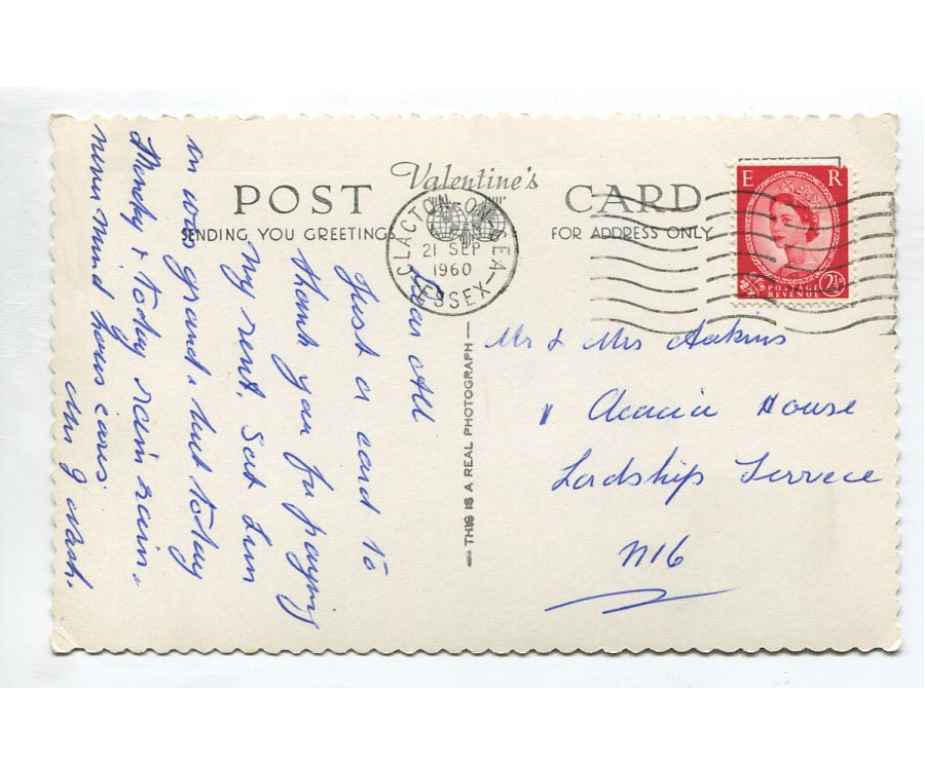 Valentine's
POST CARD
SENDING YOU GREETINGS
FOR ADDRESS ONLY
CLACTON ON SEA
21 SEP
1960
ESSEX
E R
POSTAGE
REVENUE
2½
THIS IS A REAL PHOTOGRAPH
Dear All
Just a card to
thank you for paying
my rent. Sat Sun
was grand, but today
Monday & Today rain rain.
never mind hows cares
Mrs J Nash.
Mr & Mrs Adkins
11 Acacia House
Lordship Terrece
N16